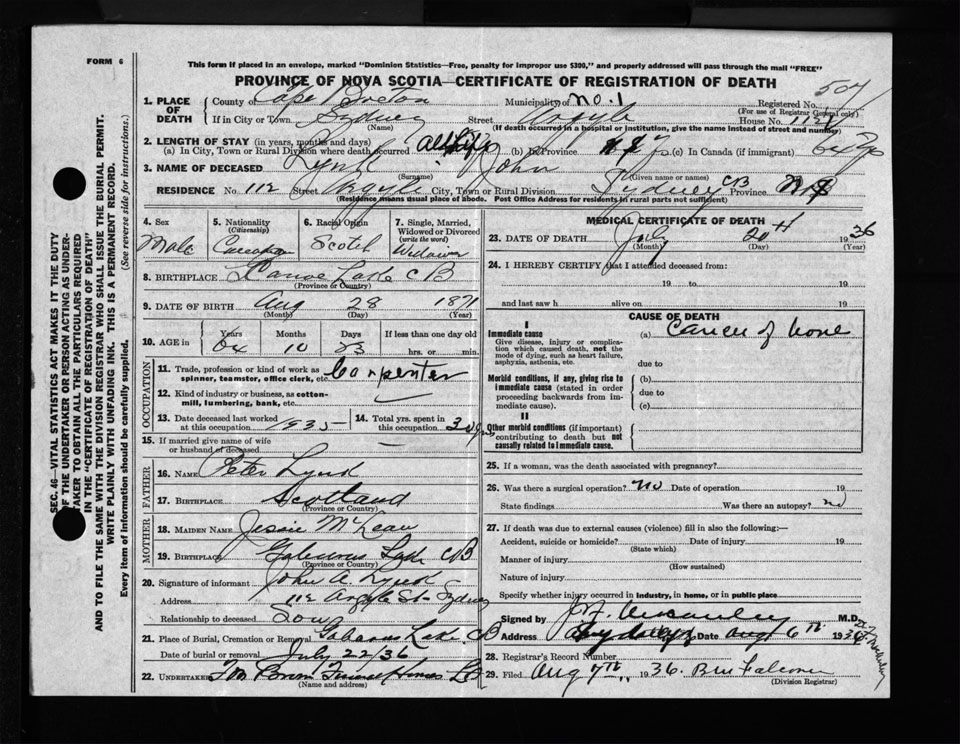 FORM 6
This form if placed in an envelope, marked "Dominion Statistics—Free, penalty for improper use $300," and properly addressed will pass through the mail "FREE"
PROVINCE OF NOVA SCOTIA—CERTIFICATE OF REGISTRATION OF DEATH
1. PLACE OF DEATH { County of Cape Breton Municipality of No. 1 Registered No. 507
(For use of Registrar General only)
If in City or Town Sydney Street Argyle House No. 112
(Name) (If death occurred in a hospital or institution, give the name instead of street and number)
2. LENGTH OF STAY (in years, months and days)
(a) In City, Town or Rural Division where death occurred (b) In Province (c) In Canada (if immigrant)
3. NAME OF DECEASED Lynk John
(Surname) (Given name or names)
RESIDENCE No 112 Street Argyle City, Town or Rural Division Sydney CB Province NS
(Residence means usual place of abode. Post Office Address for residents in rural parts not sufficient)
4. Sex Male
5. Nationality (Citizenship) Canadian
6. Racial Origin Scotch
7. Single, Married, Widowed or Divorced (write the word) Widower
8. BIRTHPLACE Canoe Lake CB
(Province or Country)
9. DATE OF BIRTH Aug 28 1871
(Month) (Day) (Year)
10. AGE in { Years 64 Months 10 Days 23 If less than one day old hrs. or min.
OCCUPATION
11. Trade, profession or kind of work as spinner, teamster, office clerk, etc. Carpenter
12. Kind of industry or business, as cotton-mill, lumbering, bank, etc.
13. Date deceased last worked at this occupation 1935
14. Total yrs. spent in this occupation 30 yrs
15. If married give name of wife or husband of deceased —
FATHER
16. NAME Peter Lynk
17. BIRTHPLACE Scotland
(Province or Country)
MOTHER
18. MAIDEN NAME Jessie McLean
19. BIRTHPLACE Gabarus Lake CB
(Province or Country)
20. Signature of informant John A. Lynk
Address 112 Argyle St Sydney
Relationship to deceased Son
21. Place of Burial, Cremation or Removal Gabarus Lake CB
Date of burial or removal July 22/36
22. UNDERTAKER Funeral Homes Ltd
(Name and address)
MEDICAL CERTIFICATE OF DEATH
23. DATE OF DEATH July 20th 1936
(Month) (Day) (Year)
24. I HEREBY CERTIFY that I attended deceased from:
19 to 19
and last saw h alive on 19
CAUSE OF DEATH
I
Immediate cause
Give disease, injury or complication which caused death, not the mode of dying, such as heart failure, asphyxia, asthenia, etc.
(a) Cancer of bone
due to
Morbid conditions, if any, giving rise to immediate cause (stated in order proceeding backwards from immediate cause).
(b)
due to
(c)
II
Other morbid conditions (if important) contributing to death but not causally related to immediate cause.
25. If a woman, was the death associated with pregnancy?
26. Was there a surgical operation? no Date of operation 19
State findings Was there an autopsy? no
27. If death was due to external causes (violence) fill in also the following:—
Accident, suicide or homicide? Date of injury 19
(State which)
Manner of injury
(How sustained)
Nature of injury
Specify whether injury occurred in industry, in home, or in public place
Signed by M.D.
Address Date Aug 6th 1936
28. Registrar's Record Number
29. Filed Aug 7th 1936. Falconer
(Division Registrar)
SEC. 46—VITAL STATISTICS ACT MAKES IT THE DUTY OF THE UNDERTAKER OR PERSON ACTING AS UNDERTAKER TO OBTAIN ALL THE PARTICULARS REQUIRED IN THE "CERTIFICATE OF REGISTRATION OF DEATH" AND TO FILE THE SAME WITH THE DIVISION REGISTRAR WHO SHALL ISSUE THE BURIAL PERMIT.
WRITE PLAINLY WITH UNFADING INK. THIS IS A PERMANENT RECORD.
Every item of information should be carefully supplied. (See reverse side for instructions.)